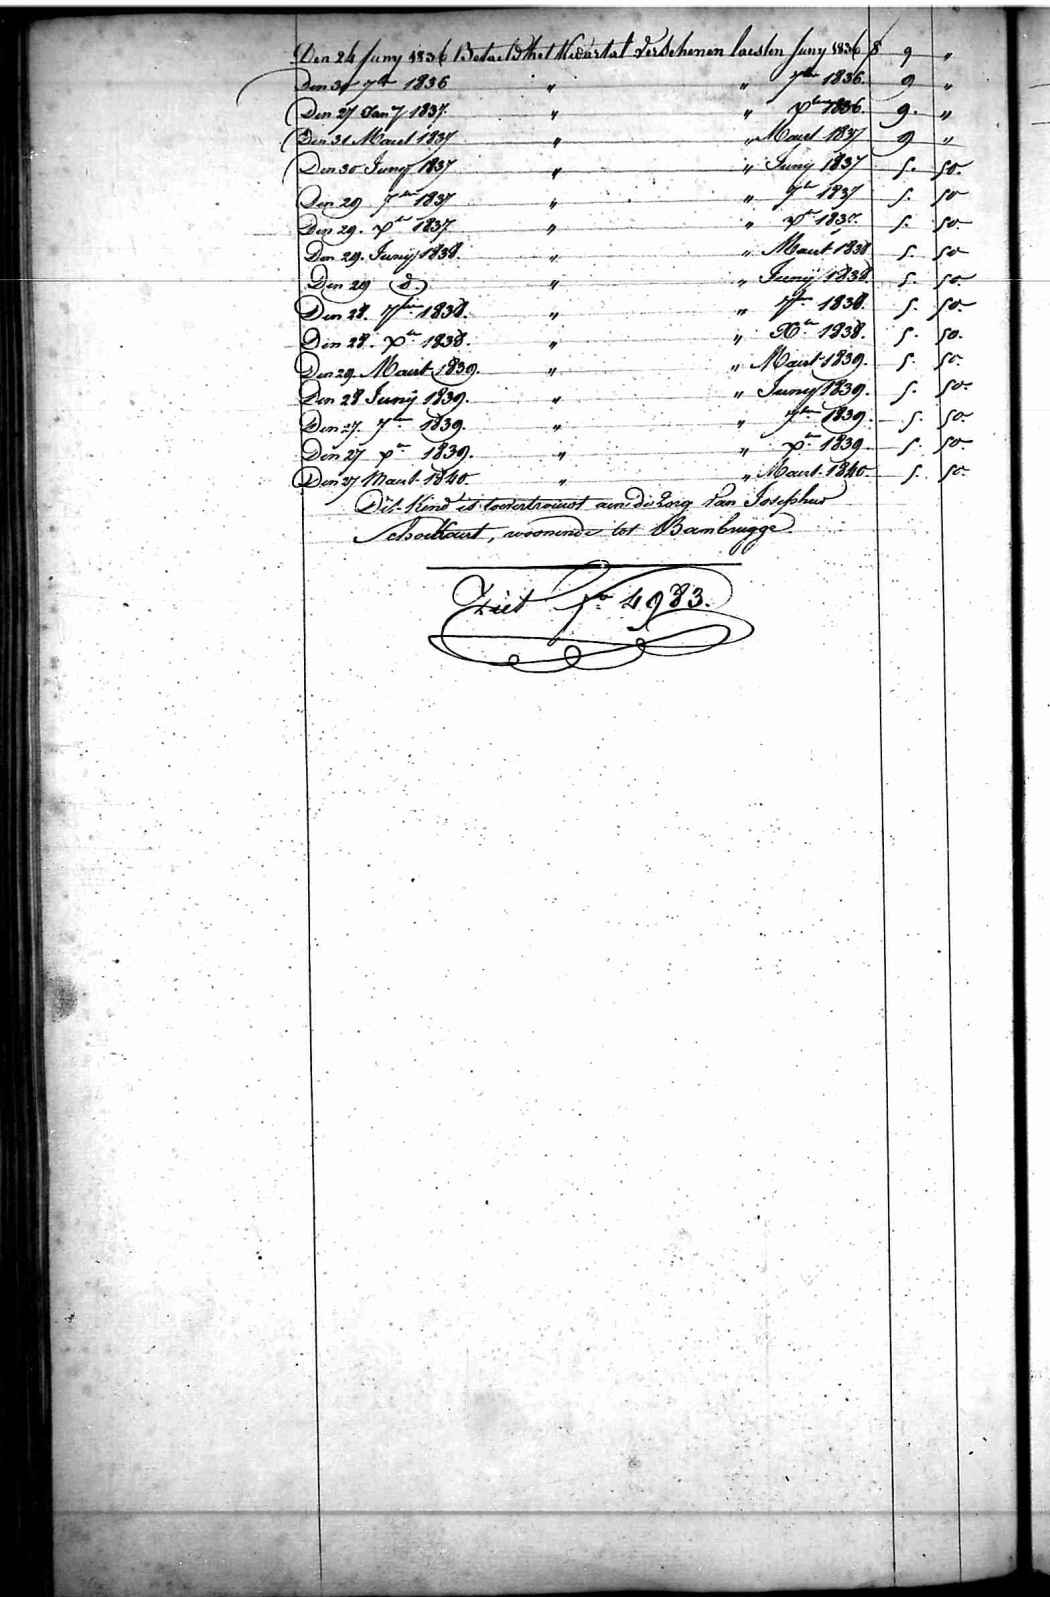 Den 24 Juny 1836 Betaeld het Kwartal Verschenen laesten Juny 1836 f 9 "
Den 30 7ber 1836 " " 7ber 1836. 9 "
Den 27 Jany 1837. " " Xber 1836. 9. "
Den 31 Maert 1837 " " Maert 1837 9 "
Den 30 Juny 1837 " " Juny 1837 5. 50.
Den 29 7ber 1837 " " 7br 1837 5. 50
Den 29. Xbr 1837. " " Xbr 1837. 5. 50.
Den 29. Junij 1838. " " Maert 1838 5. 50
Den 29 d.o " " Junij 1838. 5. 50.
Den 28. 7ber 1838. " " 7ber 1838. 5. 50.
Den 28. Xbr 1838. " " Xber 1838. 5. 50.
Den 29. Maert 1839. " " Maert 1839. 5. 50.
Den 28 Junij 1839. " " Junij 1839. 5. 50.
Den 27. 7ber 1839. " " 7ber 1839. 5. 50.
Den 27 Xbr 1839. " " Xbr 1839 5. 50.
Den 27 Maert 1840. " " Maert 1840. 5. 50.
Dit Kind is toevertrouwt aen de zorg van Josephus
, woonende tot Bambrugge.
Ziet f.o 4983.